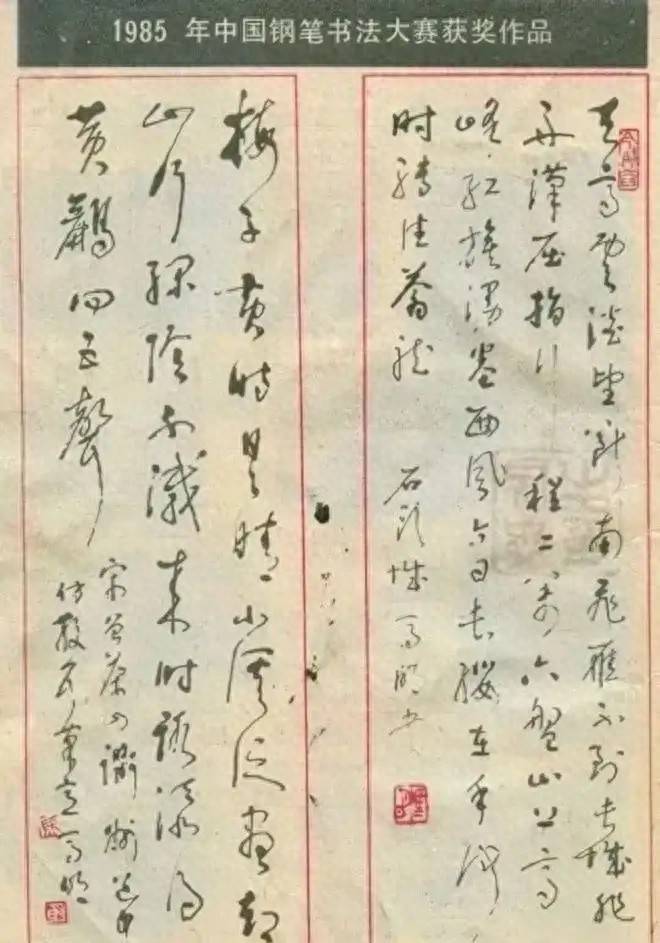 1985 年中国钢笔书法大赛获奖作品
天高雲淡望断南飛雁不到长城非
好漢屈指行程二万六盤山上高
峰红旗漫卷西风今日长缨在手何
时缚住苍龙
石头城高明书
梅子黄時日日晴小溪泛盡却
山行绿陰不減来时路添得
黄鸝四五聲
宋曾茶山 道中
高明